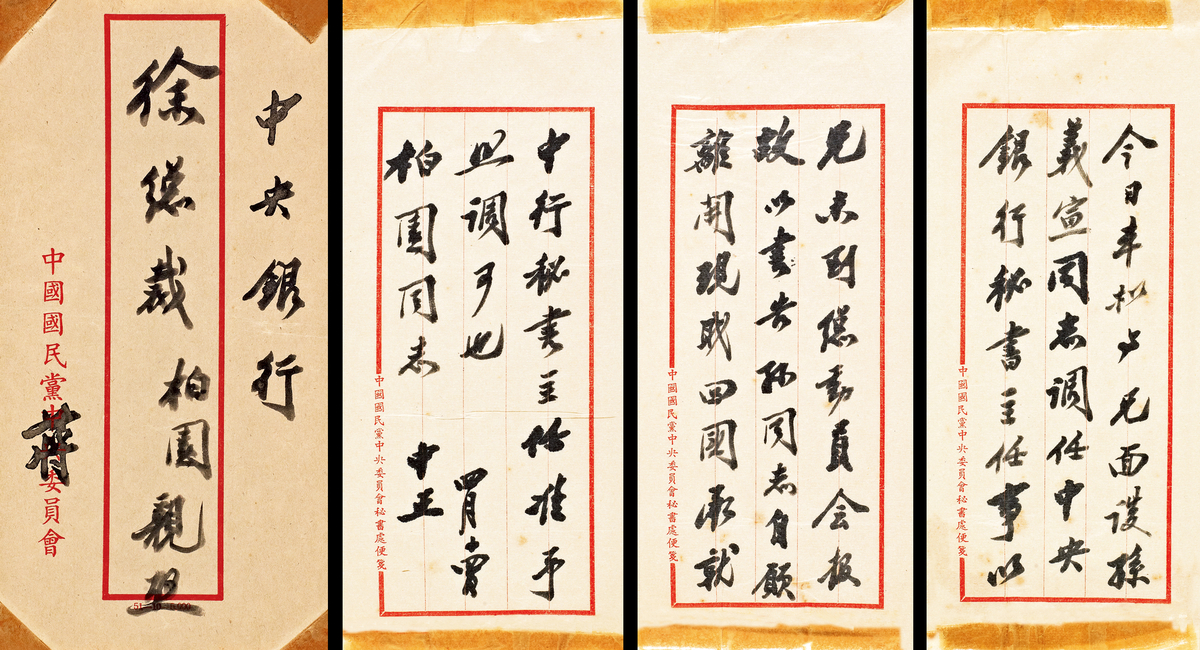 中央銀行
徐總裁 柏園親啟
蔣
中國國民黨中央委員會
今日本擬与兄面談孫
義宣同志調任中央
銀行秘書主任事以
中國國民黨中央委員會秘書處便箋
兄未到總動員会報
故以書告孫同志自願
離開現職回國承就
中國國民黨中央委員會秘書處便箋
中行秘書主任准予
照調可也
柏園同志 中正
四月
中國國民黨中央委員會秘書處便箋